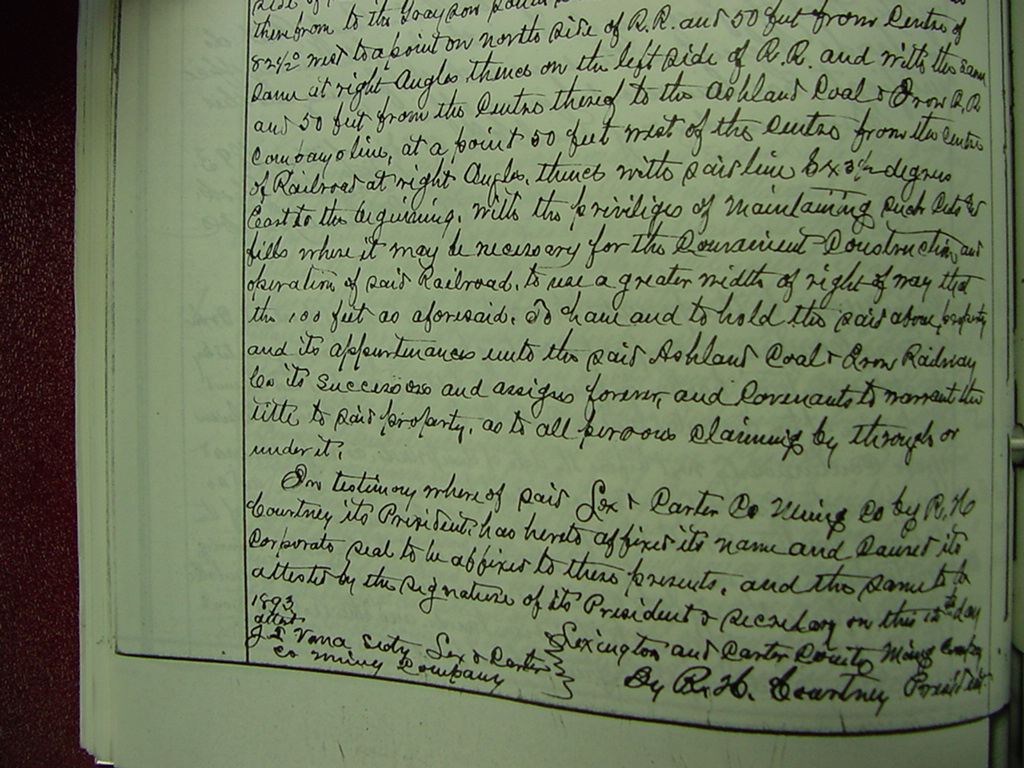 side of
therefrom to the Grayson
82½° west to a point on north side of R.R. and 50 feet from Centre of
same at right Angles thence on the left side of R.R. and with the same
and 50 feet from the Centre thereof to the Ashland Coal & Iron R.R
Company line, at a point 50 feet west of the Centre from the centre
of Railroad at right Angles, thence with said line degrees
East to the beginning. With the priviliges of maintaining such Cuts &
fills where it may be necessary for the Convenient Construction and
operation of said Railroad, to use a greater width of right of way than
the 100 feet as aforesaid. To have and to hold the said above property
and its appurtenances unto the said Ashland Coal & Iron Railway
Co its Successors and assigns forever, and Covenants to warrant the
title to said property, as to all persons claiming by through or
under it.
In testimony where of said Lex & Carter Co Mining Co by R. H
Courtney its President, has hereto affixed its name and Caused its
Corporate seal to be affixed to these presents, and the same to be
attested by the signature of its President & Secretary on this 15th day
1893
attest Lexington and Carter County Mining Company
J S Vana Secty Lex & Carter
Co Mining Company By R. H. Courtney President